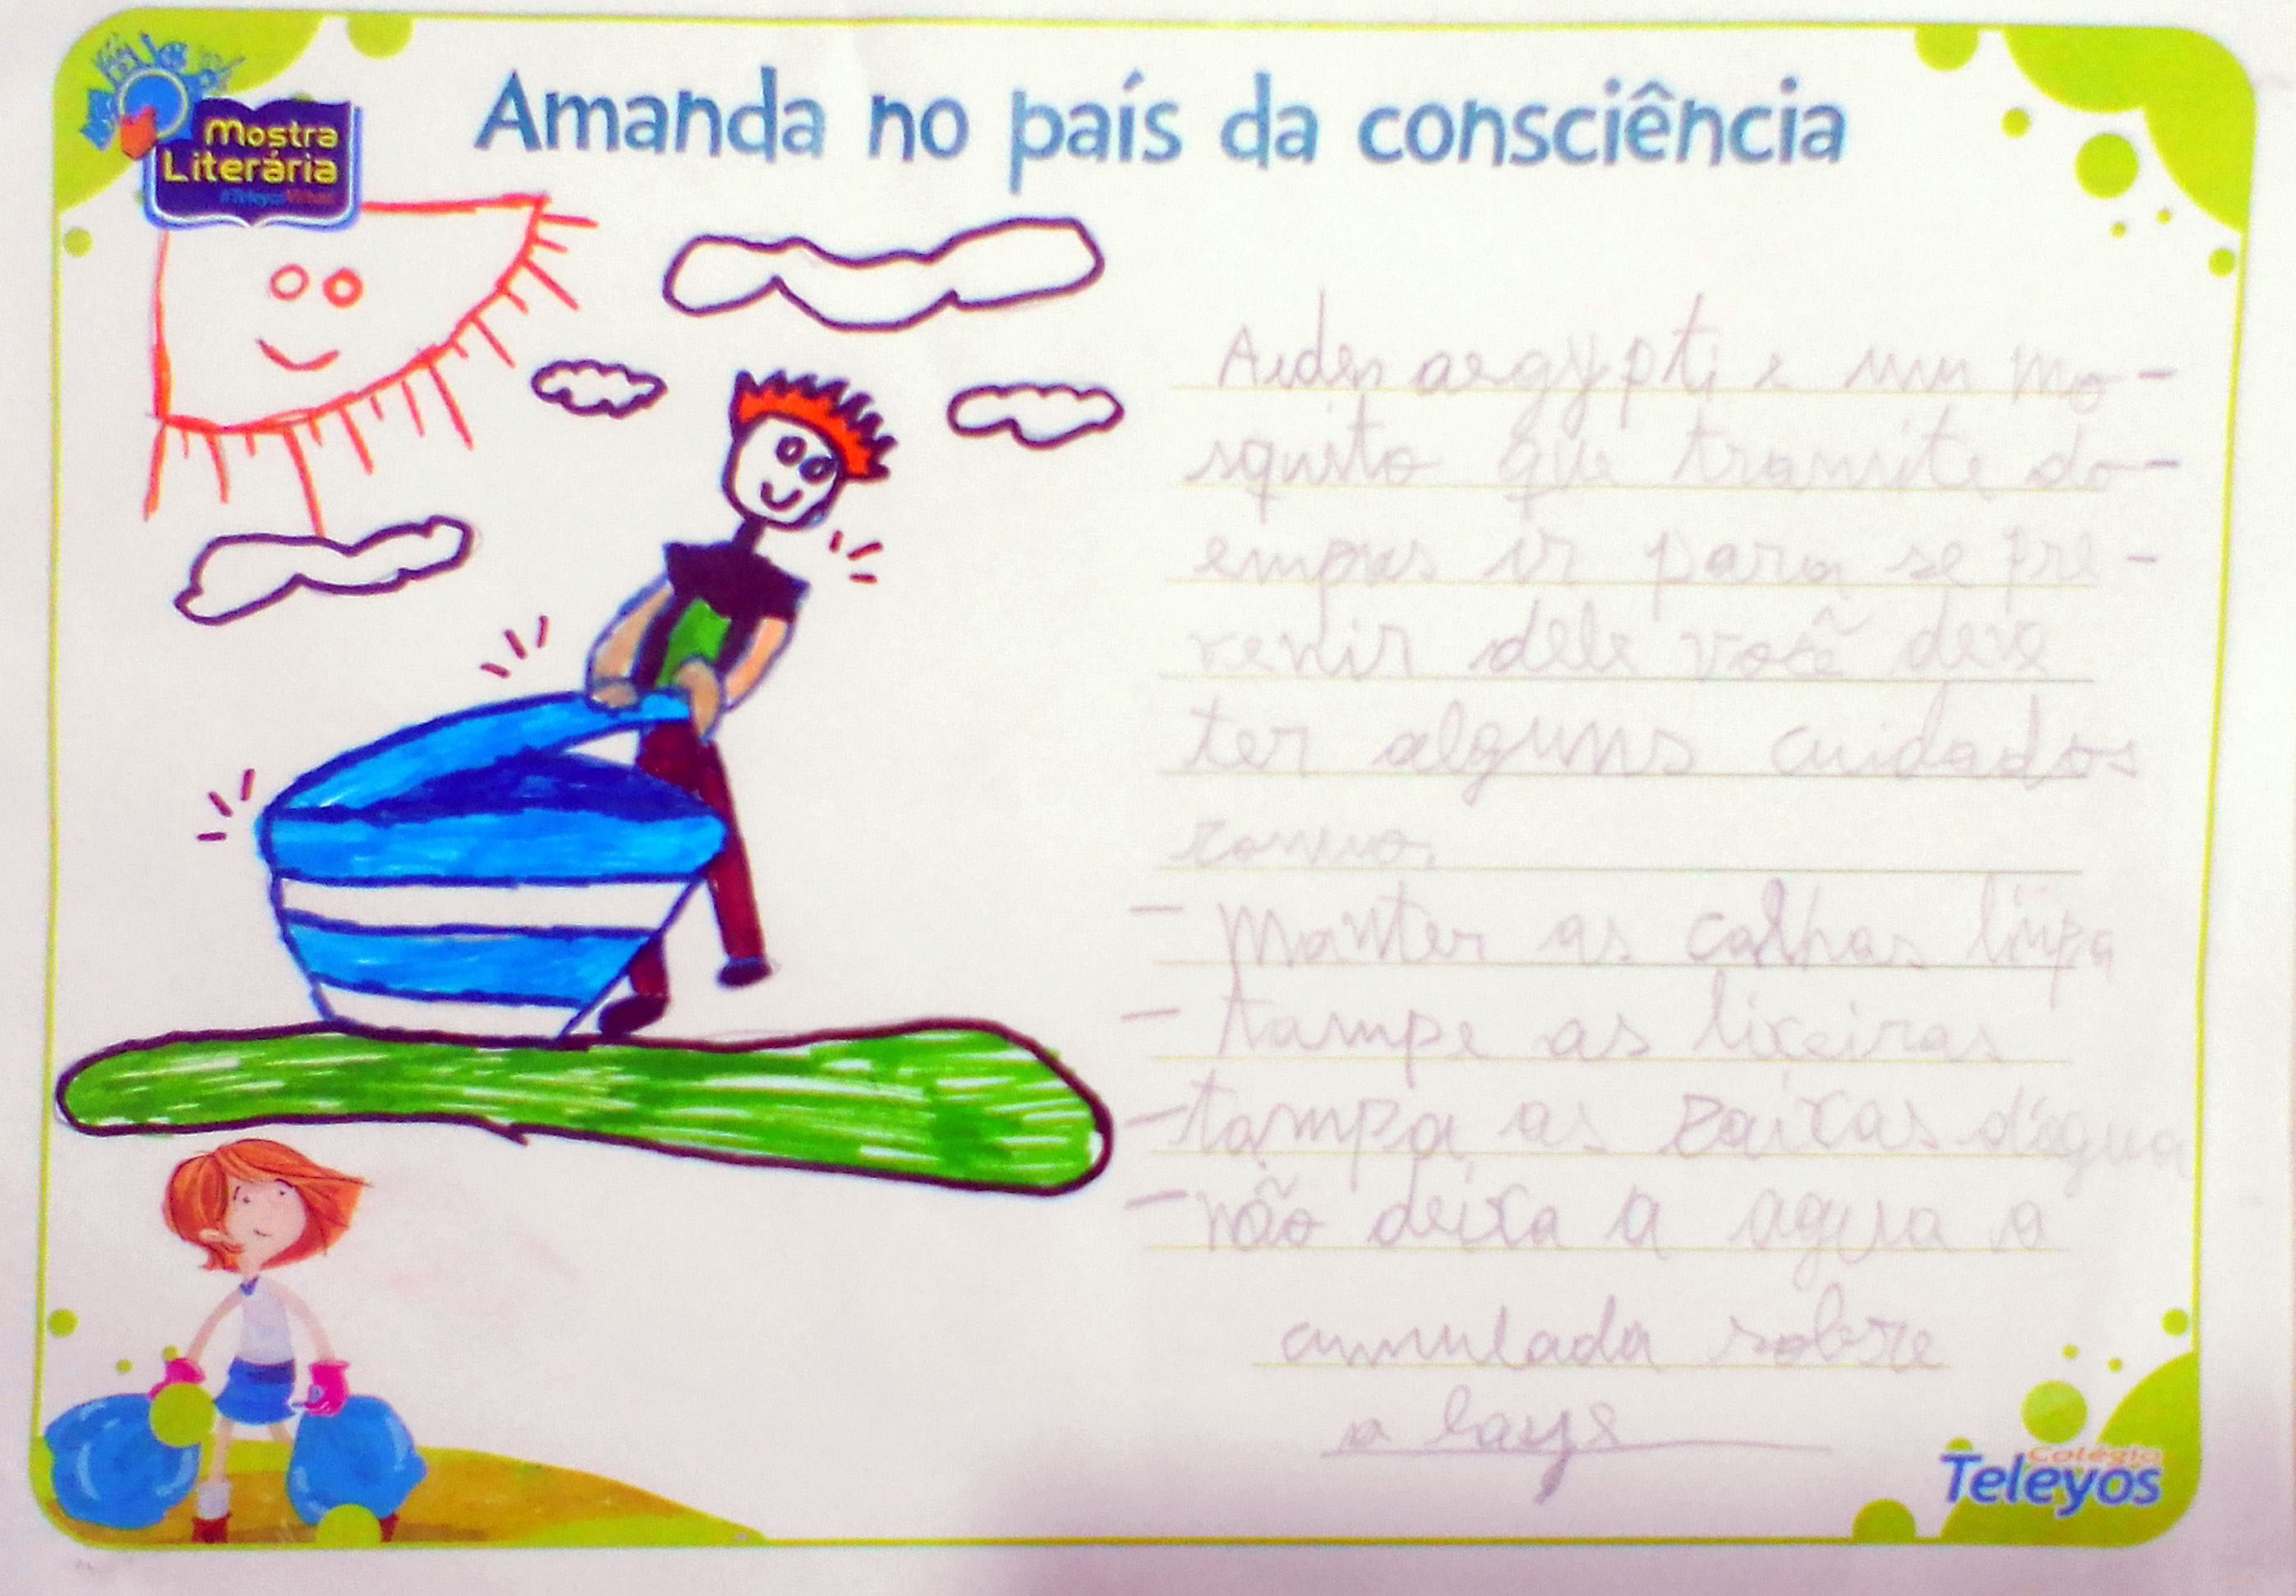 Mostra
Literária
#TeleyosVirtual
Amanda no país da consciência
Aides aegypti e um mo-
squito que transite do-
empras ir para se pre-
venir dele você deve
ter alguns cuidados
- Manter as calhas limpa
- tampe as lixeiras
- tampa as caixas d'água
- não deixa a agua a
cumulada sobre
a laje
Colégio
Teleyos